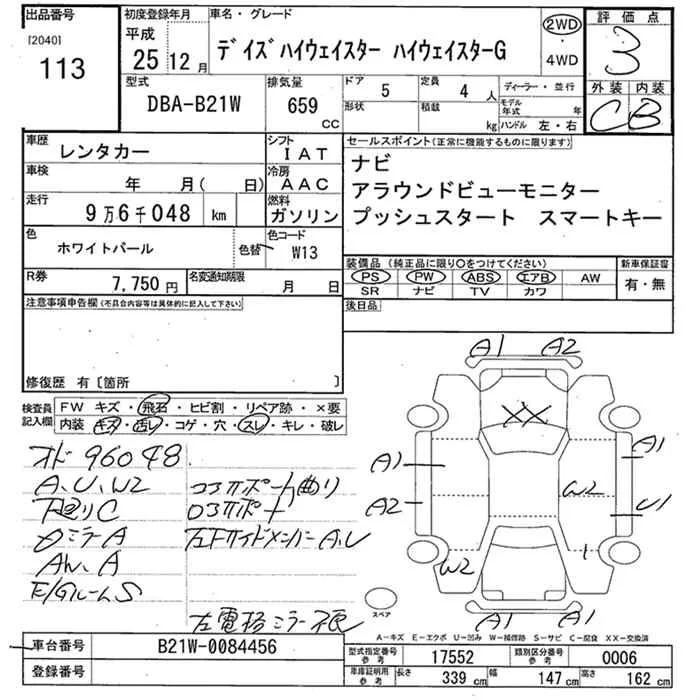 出品番号
[2040]
113
初度登録年月
平成
25 12 月
車名・グレード
デイズハイウェイスター ハイウェイスターG
2WD
・
4WD
評価点
3
外装 内装
C B
型式
DBA-B21W
排気量
659 CC
ドア 5
形状
定員 4 人
積載 kg
ディーラー・並行
モデル年式 年
ハンドル 左・右
車歴
レンタカー
シフト
IAT
車検 年 月( 日)
冷房
AAC
走行
9万6千048 km
燃料
ガソリン
色
ホワイトパール
色替
色コード
W13
R券
7,750円
名変通知期限 月 日
セールスポイント(正常に機能するものに限ります)
ナビ
アラウンドビューモニター
プッシュスタート スマートキー
装備品(純正品に限り○をつけてください)
PS PW ABS エアB AW
SR ナビ TV カワ
新車保証書
有・無
後日品
注意事項申告欄(不具合内容等は具体的に記入して下さい)
修復歴 有〔箇所 〕
検査員記入欄
FW キズ・飛石・ヒビ割・リペア跡・×要
内装・キズ・汚レ・コゲ・穴・スレ・キレ・破レ
オド 96048
A、U、W2
下廻りC
ミラーA
AW、A
E/GルームS
コアサポート曲り
ロアサポート
左Fサイドメンバー A、U
左電格ミラー不良
A1 A2
XX
A1
A2
A1
W2
U1
W2
A1 A1
スペア
A-キズ E-エクボ U-凹み W-補修跡 S-サビ C-腐食 XX-交換済
車台番号
B21W-0084456
登録番号
型式指定番号 参考 17552
類別区分番号 参考 0006
車庫証明用 参考 長さ 339 cm 幅 147 cm 高さ 162 cm